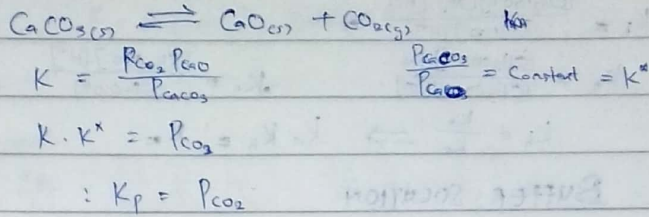 CaCO3(s) ⇌ CaO(s) + CO2(g)
K = PCO2 PCaO / PCaCO3    PCaCO3 / PCaO = Constant = K*
K . K* = PCO2
: Kp = PCO2